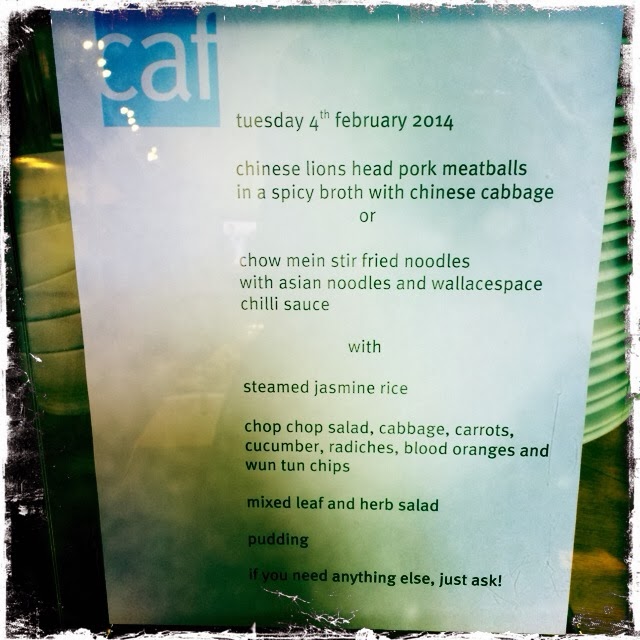 caf
tuesday 4th february 2014
chinese lions head pork meatballs
in a spicy broth with chinese cabbage
or
chow mein stir fried noodles
with asian noodles and wallacespace
chilli sauce
with
steamed jasmine rice
chop chop salad, cabbage, carrots,
cucumber, radiches, blood oranges and
wun tun chips
mixed leaf and herb salad
pudding
if you need anything else, just ask!